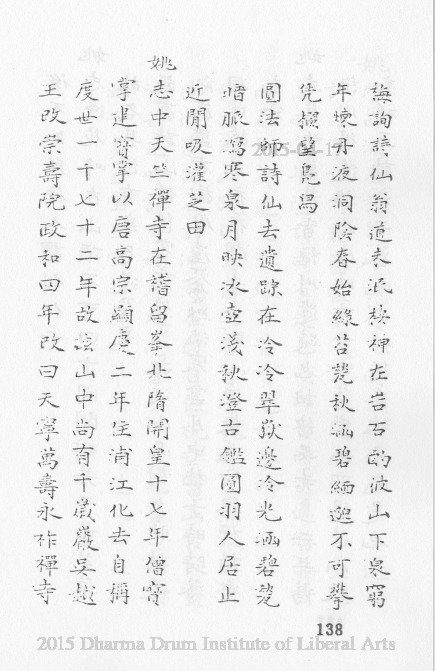 無詢詩仙翁道未泯棲神在岩石酌彼山下泉窮
年煉丹液洞陰春始綠苔甃秋涵碧緬邈不可攀
凭檻望鳧舄
圓法師詩仙去遺踪在泠泠翠嶽邊冷光涵碧甃
暗脈瀉寒泉月映冰壺淺秋澄古鑑圓羽人居止
近閒吸灌芝田
姚志中天竺禪寺在稽留峯北隋開皇十七年僧寶
掌建寶掌以唐高宗顯慶二年住浦江化去自稱
度世一千七十二年故玆山中尚有千歲巖吳越
王改崇壽院政和四年改曰天寧萬壽永祚禪寺
138
2015 Dharma Drum Institute of Liberal Arts